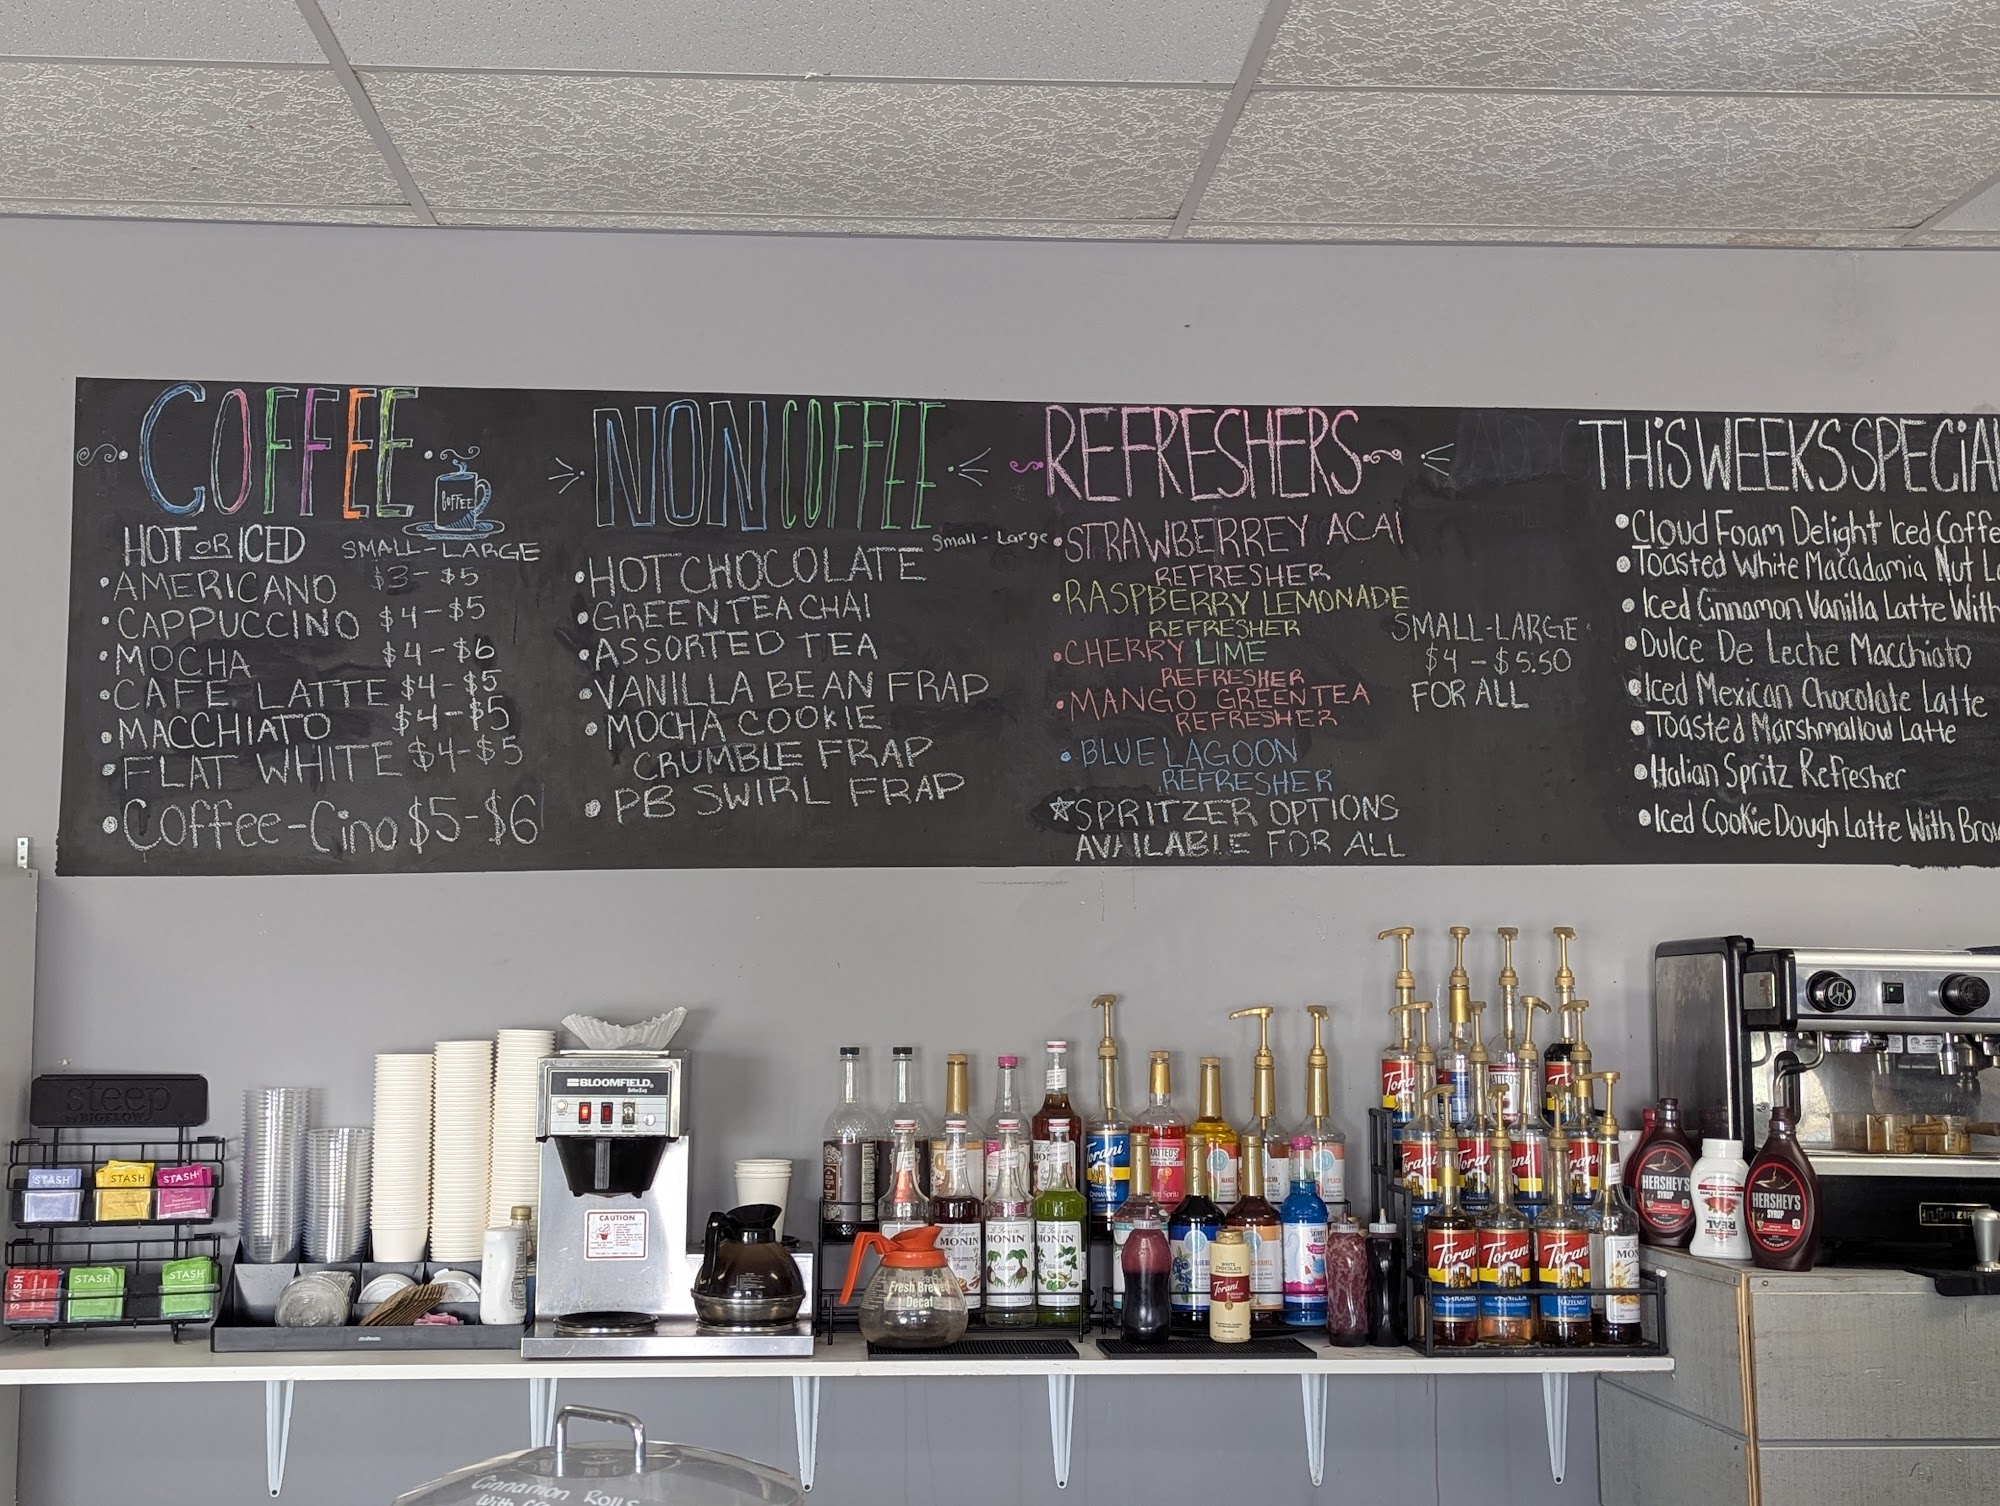 COFFEE
COFFEE
HOT OR ICED SMALL - LARGE
• AMERICANO $3 - $5
• CAPPUCCINO $4 - $5
• MOCHA $4 - $6
• CAFE LATTE $4 - $5
• MACCHIATO $4 - $5
• FLAT WHITE $4 - $5
• Coffee-Cino $5-$6
NON COFFEE
Small - Large
• HOT CHOCOLATE
• GREEN TEA CHAI
• ASSORTED TEA
• VANILLA BEAN FRAP
• MOCHA COOKIE
CRUMBLE FRAP
• PB SWIRL FRAP
REFRESHERS
• STRAWBERREY ACAI
REFRESHER
• RASPBERRY LEMONADE
REFRESHER
• CHERRY LIME
REFRESHER
• MANGO GREEN TEA
REFRESHER
• BLUE LAGOON
REFRESHER
☆SPRITZER OPTIONS
AVAILABLE FOR ALL
SMALL - LARGE
$4 - $5.50
FOR ALL
THiS WEEKS SPECiA
• Cloud Foam Delight Iced Coffe
• Toasted White Macadamia Nut L
• Iced Cinnamon Vanilla Latte With
• Dulce De Leche Macchiato
• Iced Mexican Chocolate Latte
• Toasted Marshmallow Latte
• Italian Spritz Refresher
• Iced Cookie Dough Latte With Brow
steep
BY BIGELOW
STASH STASH STASH
STASH STASH STASH
BLOOMFIELD
CAUTION
Fresh Brewed
Decaf
MONIN
MONIN
MONIN
Torani
CINNAMON
MATTEO'S
PEACH
WHITE
CHOCOLATE
Torani
CARAMEL
Torani
Torani
Torani
Torani
Torani
Torani
VANILLA
Torani
HAZELNUT
HERSHEY'S
SYRUP
REAL
HERSHEY'S
SYRUP
Cinnamon Rolls
With